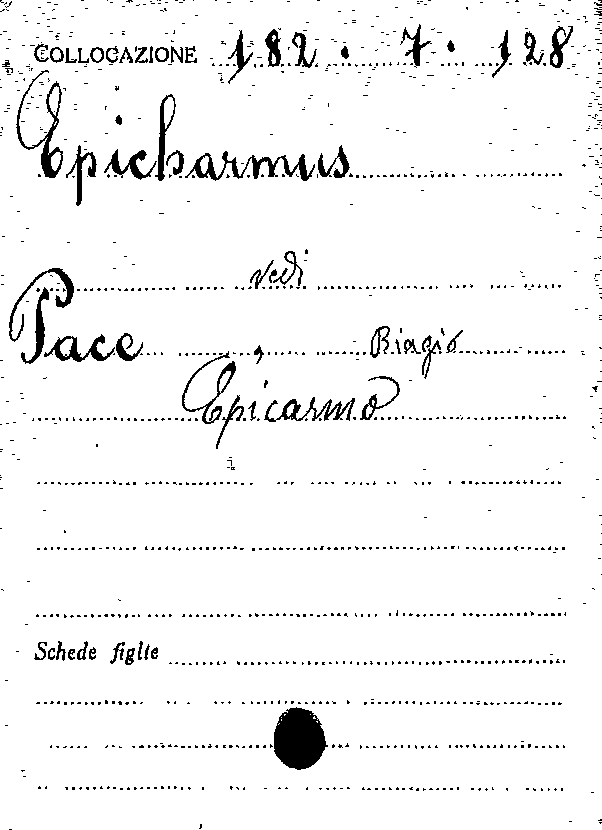 COLLOCAZIONE 182 . 7 . 128
Epicharmus
vedi
Pace , Biagio
Epicarmo
Schede figlie